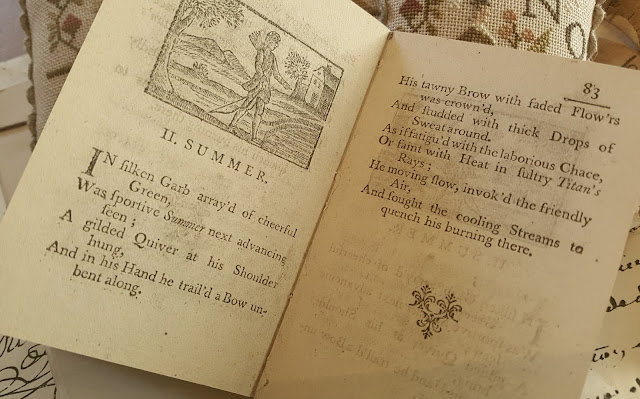 II. SUMMER.
IN ſilken Garb array'd of cheerful
Green,
Was ſportive Summer next advancing
ſeen;
A gilded Quiver at his Shoulder
hung,
And in his Hand he trail'd a Bow un-
bent along.
83
His tawny Brow with faded Flow'rs
was crown'd,
And ſtudded with thick Drops of
Sweat around.
As if fatigu'd with the laborious Chace,
Or faint with Heat in ſultry Titan's
Rays;
He moving ſlow, invok'd the friendly
Air,
And ſought the cooling Streams to
quench his burning there.